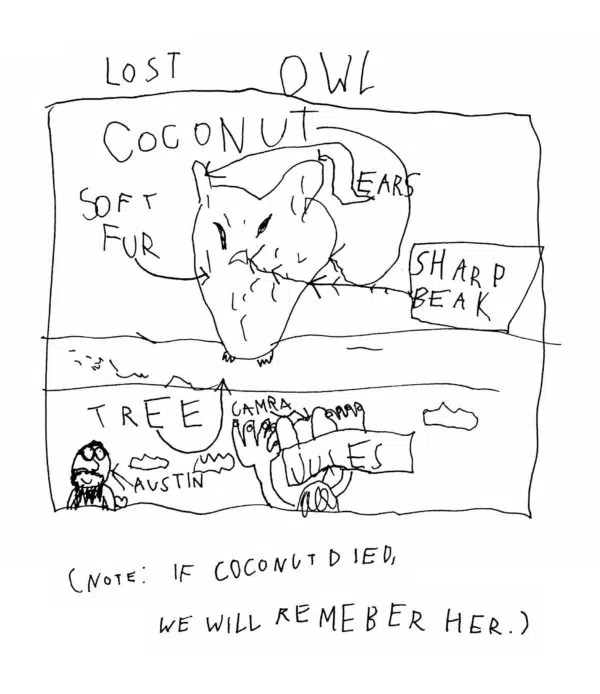 LOST OWL
COCONUT
EARS
SOFT
FUR
SHARP
BEAK
TREE
CAMRA
AUSTIN
(NOTE: IF COCONUT DIED,
WE WILL REMEBER HER.)